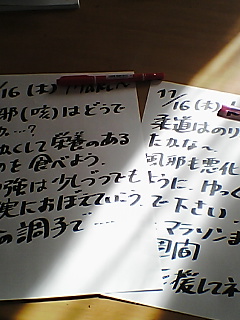 /16 (木)
邪(咳)はどうで
か…?
くして栄養のある
を食べよう。
強は少しづつでも
実におぼえていこう。
の調子で……
11/16 (木)
柔道はのり
たかな〜
風邪も悪化
ように、ゆっく
で下さい
マラソンま
週間
応援してネ